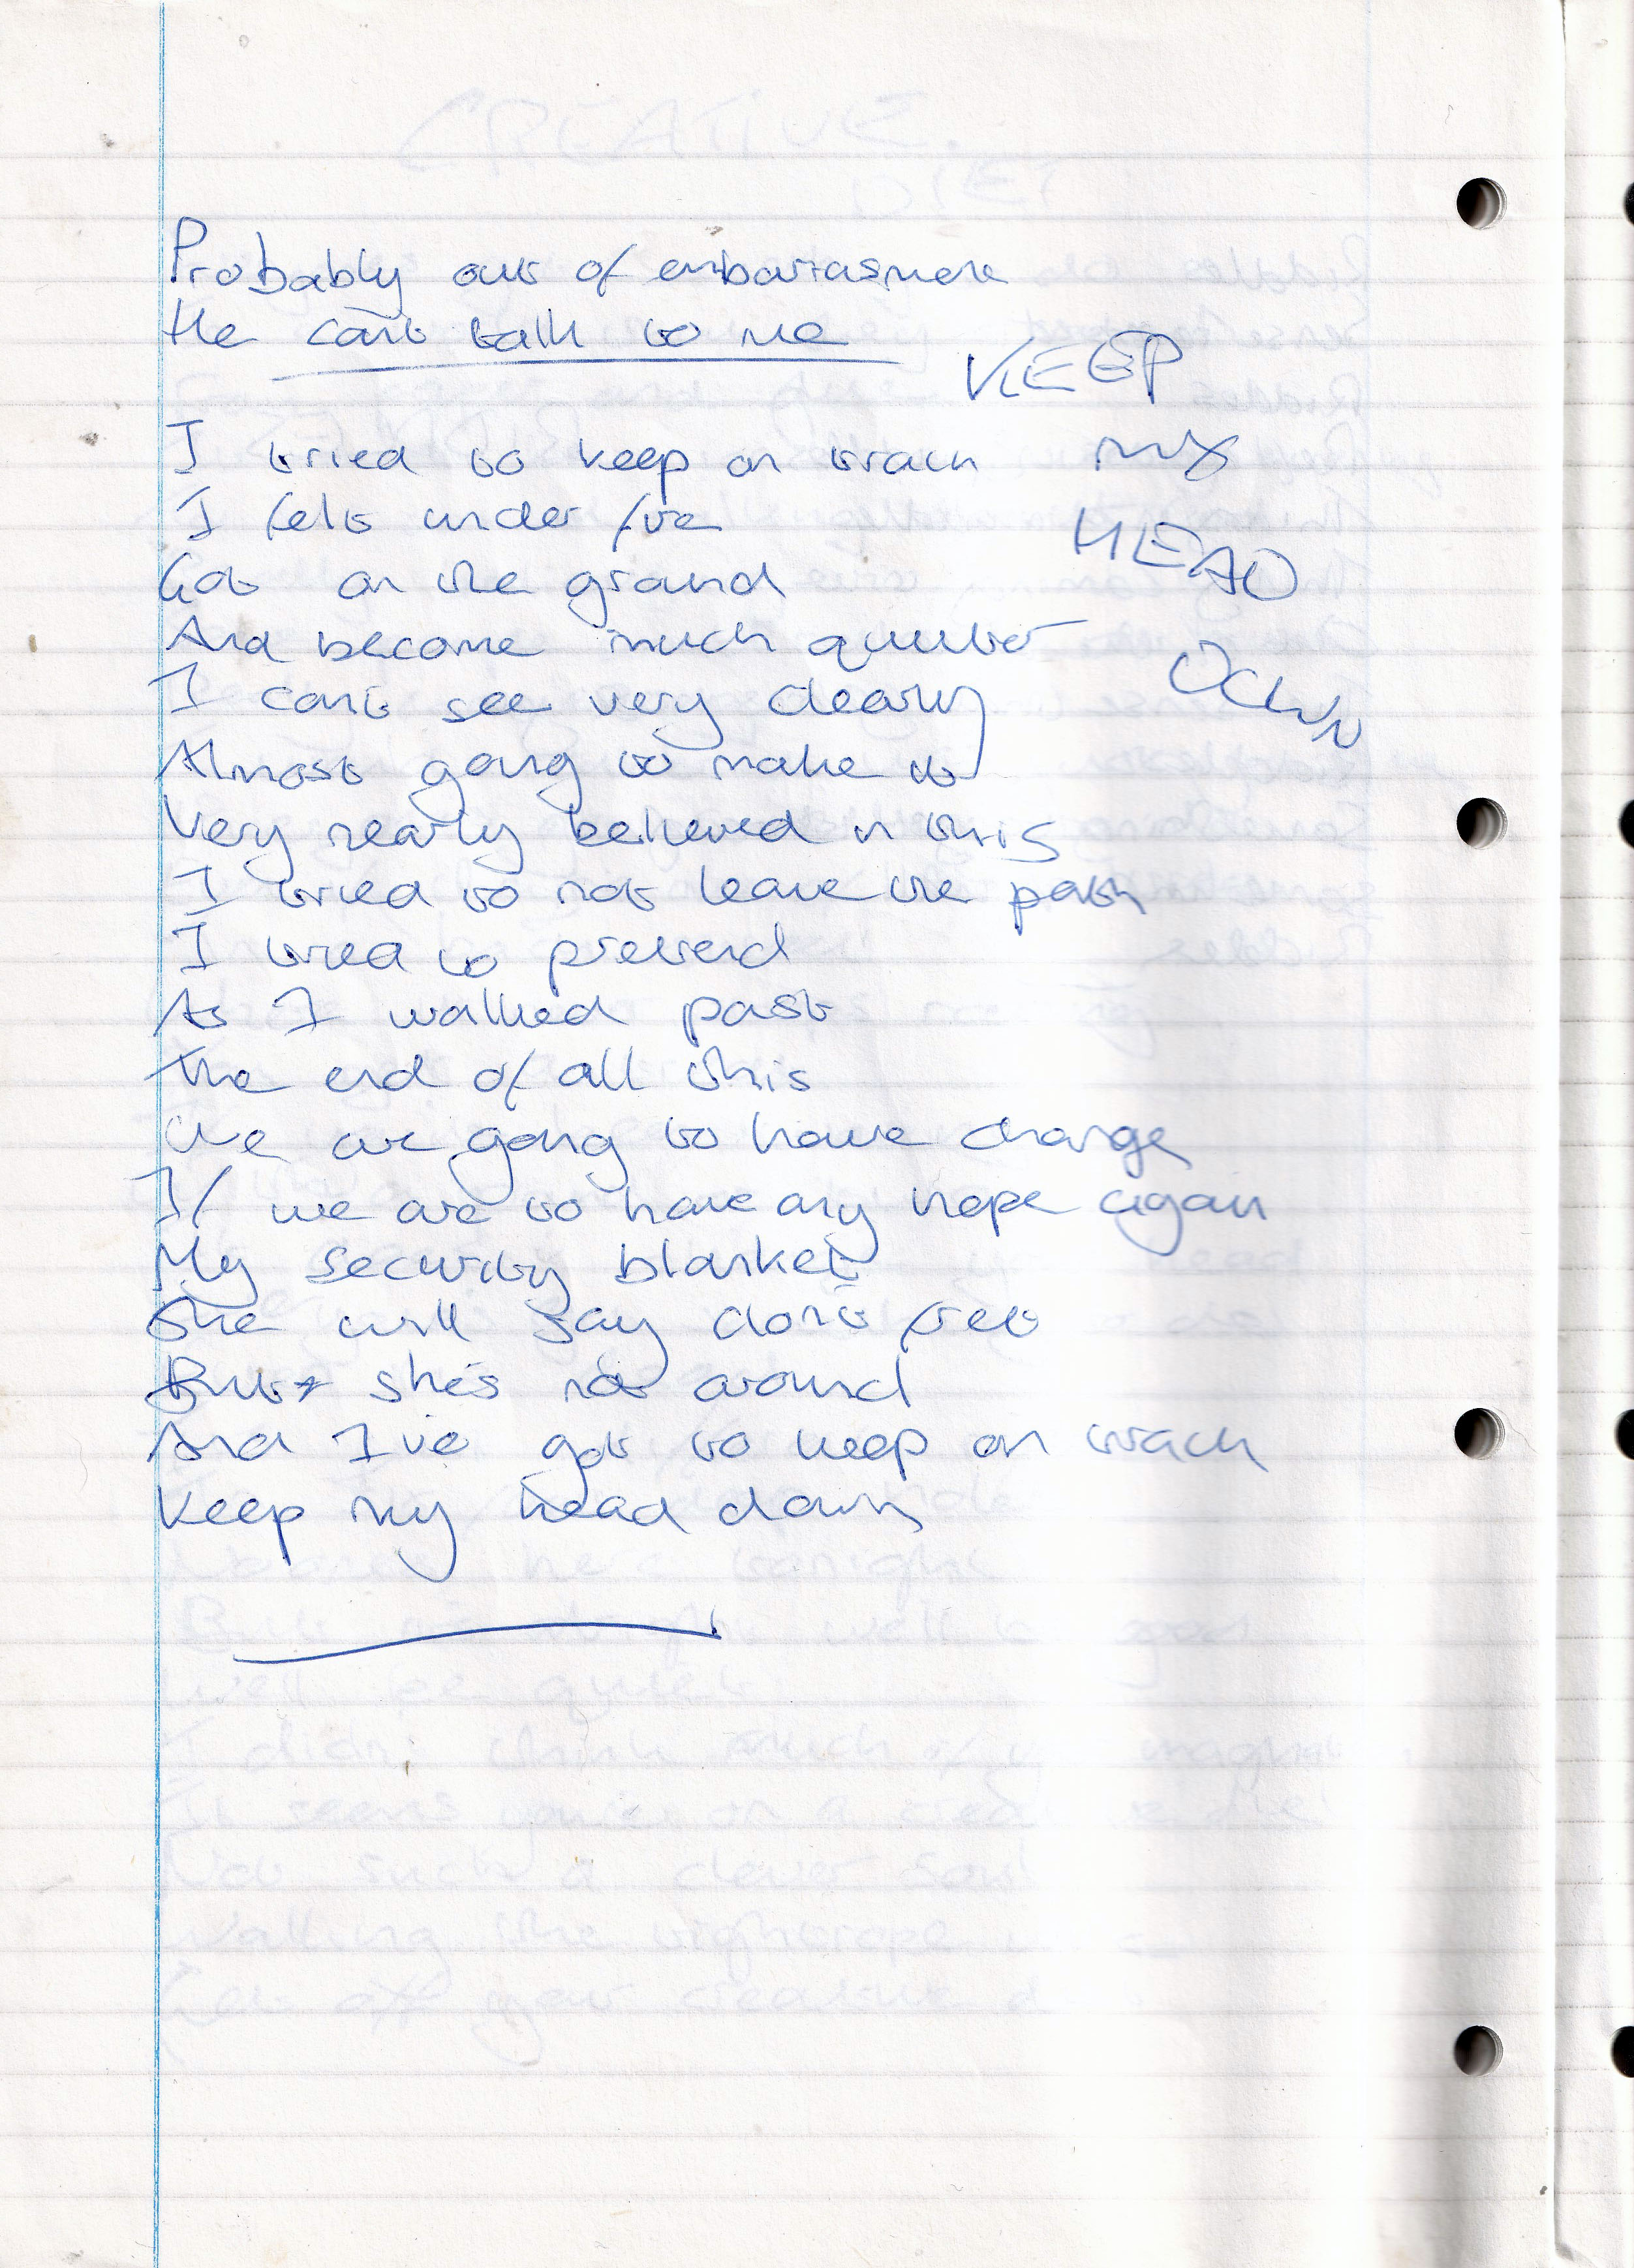 Probably out of embarrasment
He can't talk to me
KEEP
MY
HEAD
DOWN
I tried to keep on track
I felt under fire
Got on the ground
And become much quieter
I cant see very clearly
Almost going to make it
Very nearly believed in this
I tried to not leave the path
I tried to pretend
As I walked past
The end of all this
We are going to have change
If we are to have any hope again
My security blanket
She will say don't fret
But she's not around
And I've got to keep on track
Keep my head down